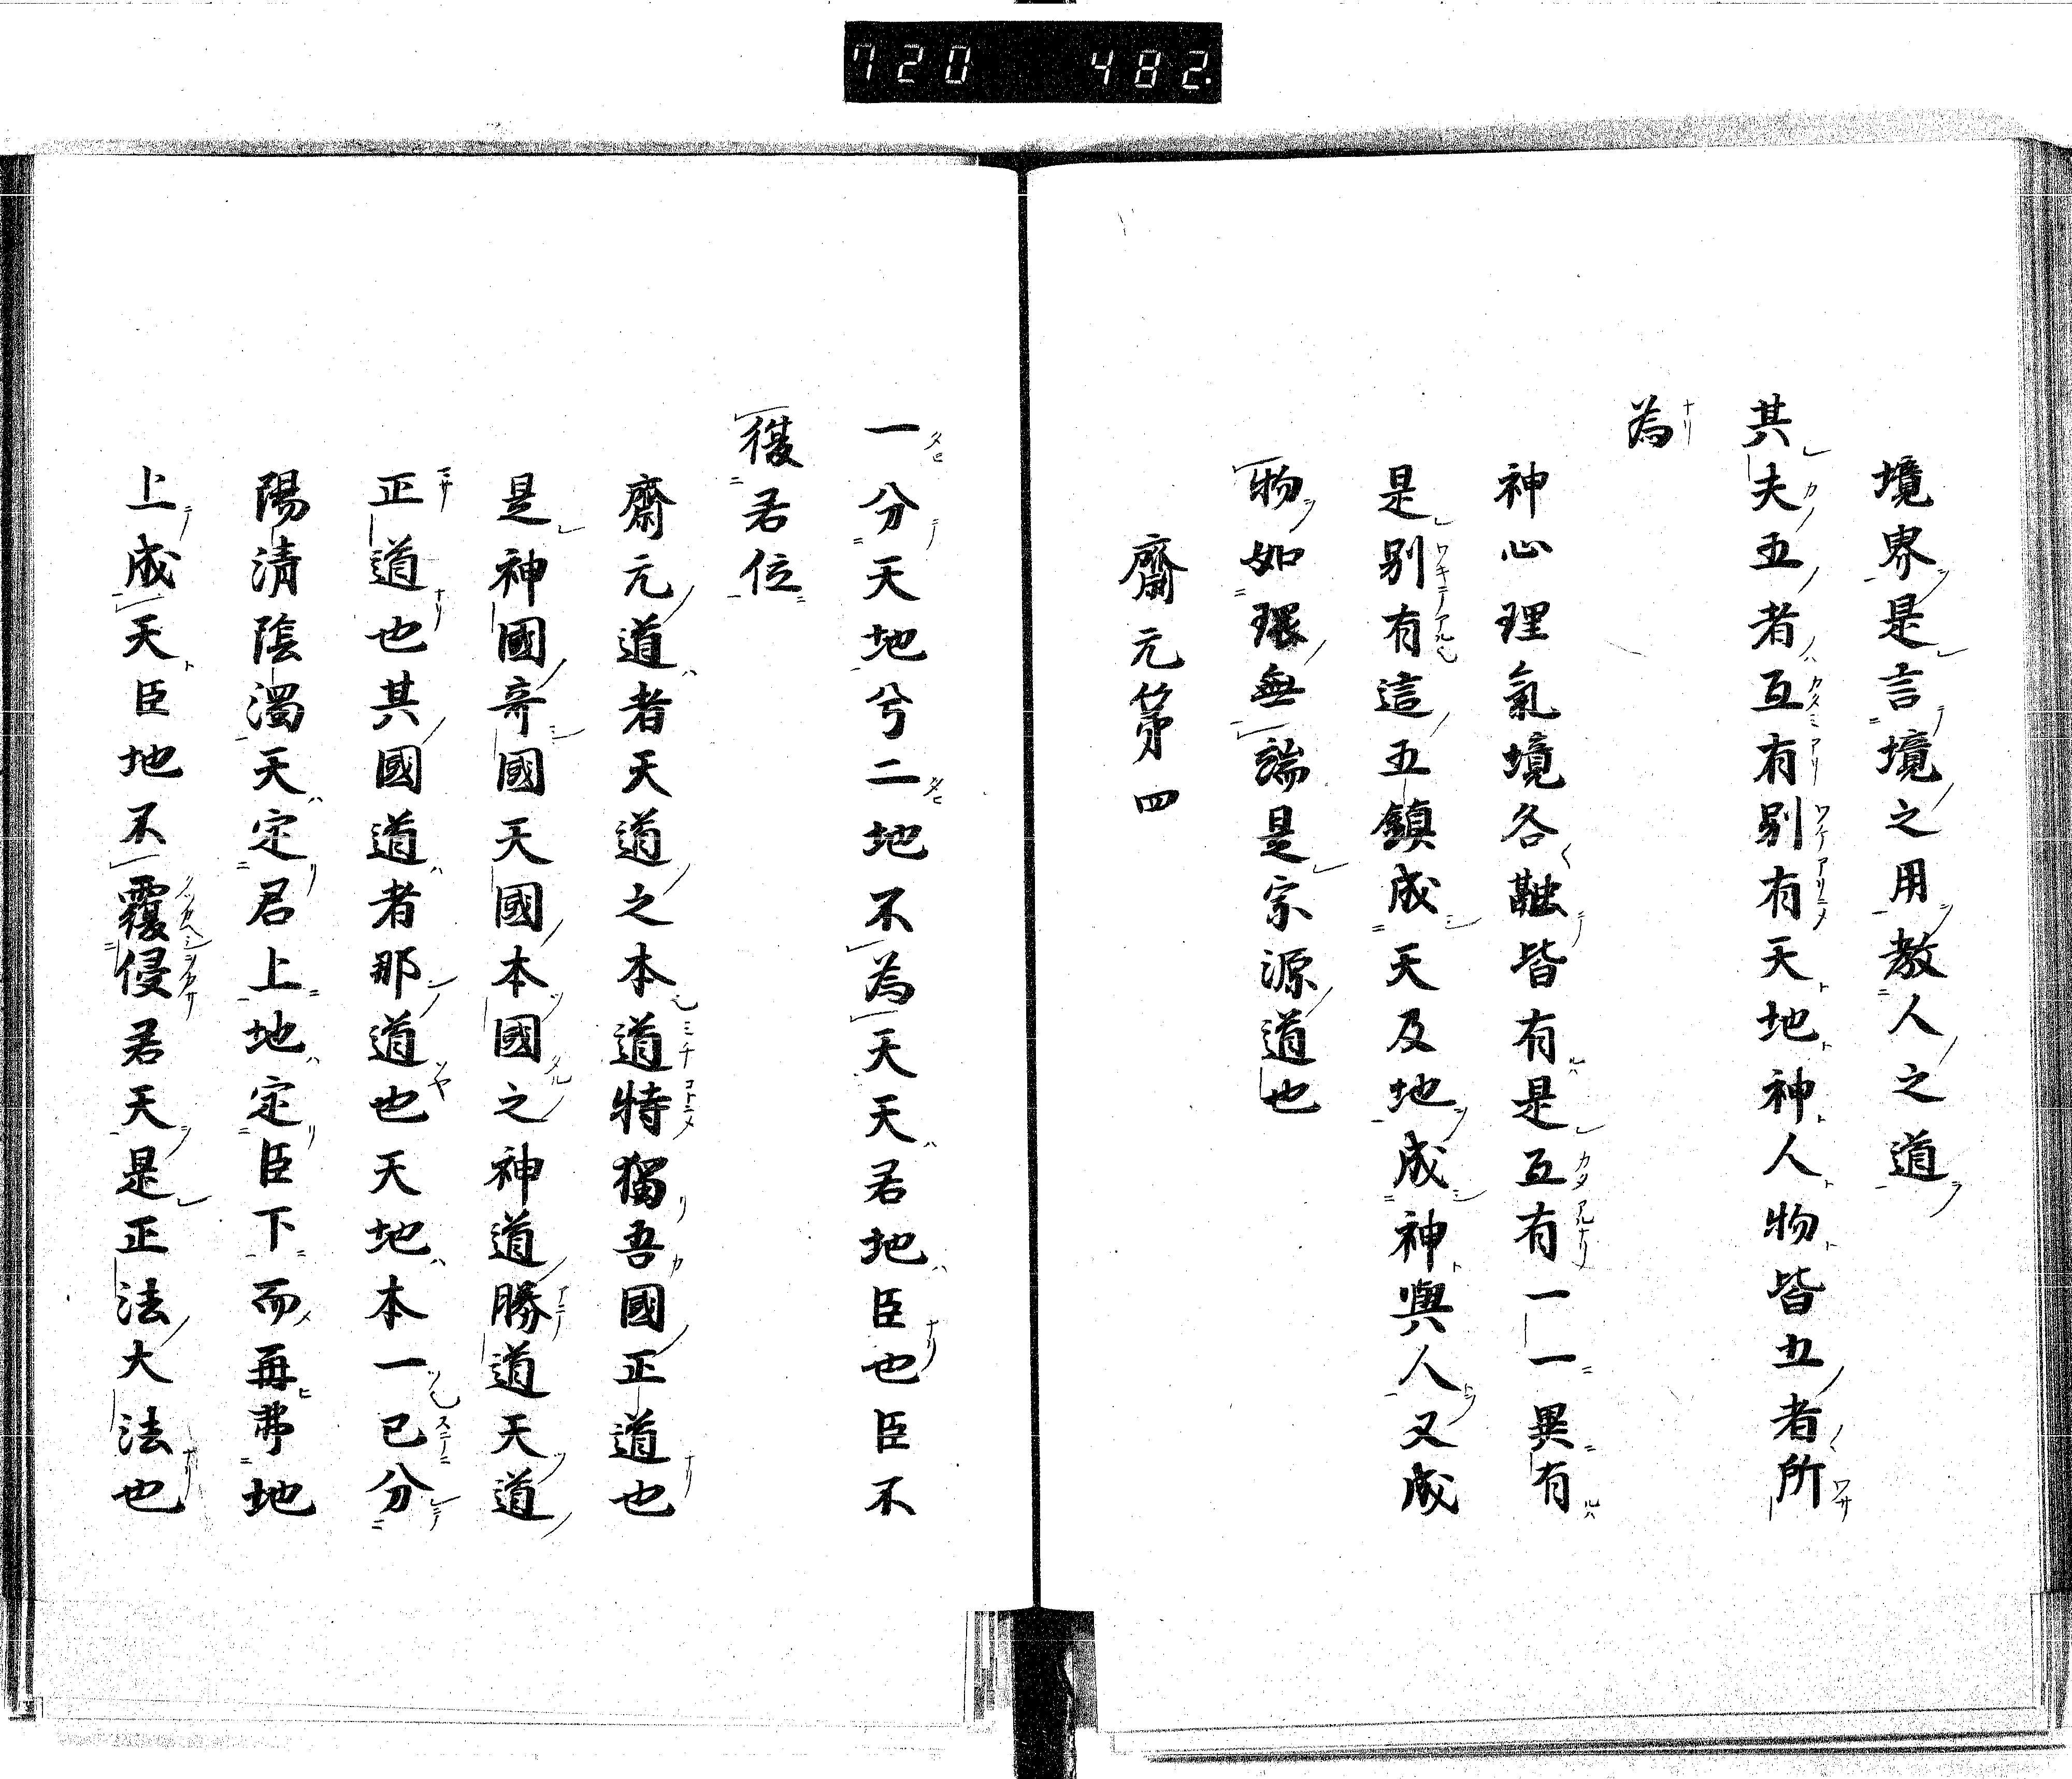 720 482.
境界是言境之用教人之道
其夫五者互有別有天地神人物皆五者所
為
神心理氣境各融皆有是互有一一異有
是別有這五鎮成天及地成神與人又成
物如環無端是宗源道也
齋元第四
一分天地兮二地不為天天君地臣也臣不
復君位
齋元道者天道之本道特獨吾國正道也
是神國奇國天國本國之神道勝道天道
正道也其國道者那道也天地本一已分
陽清陰濁天定君上地定臣下而再弗地
上成天臣地不覆侵君天是正法大法也